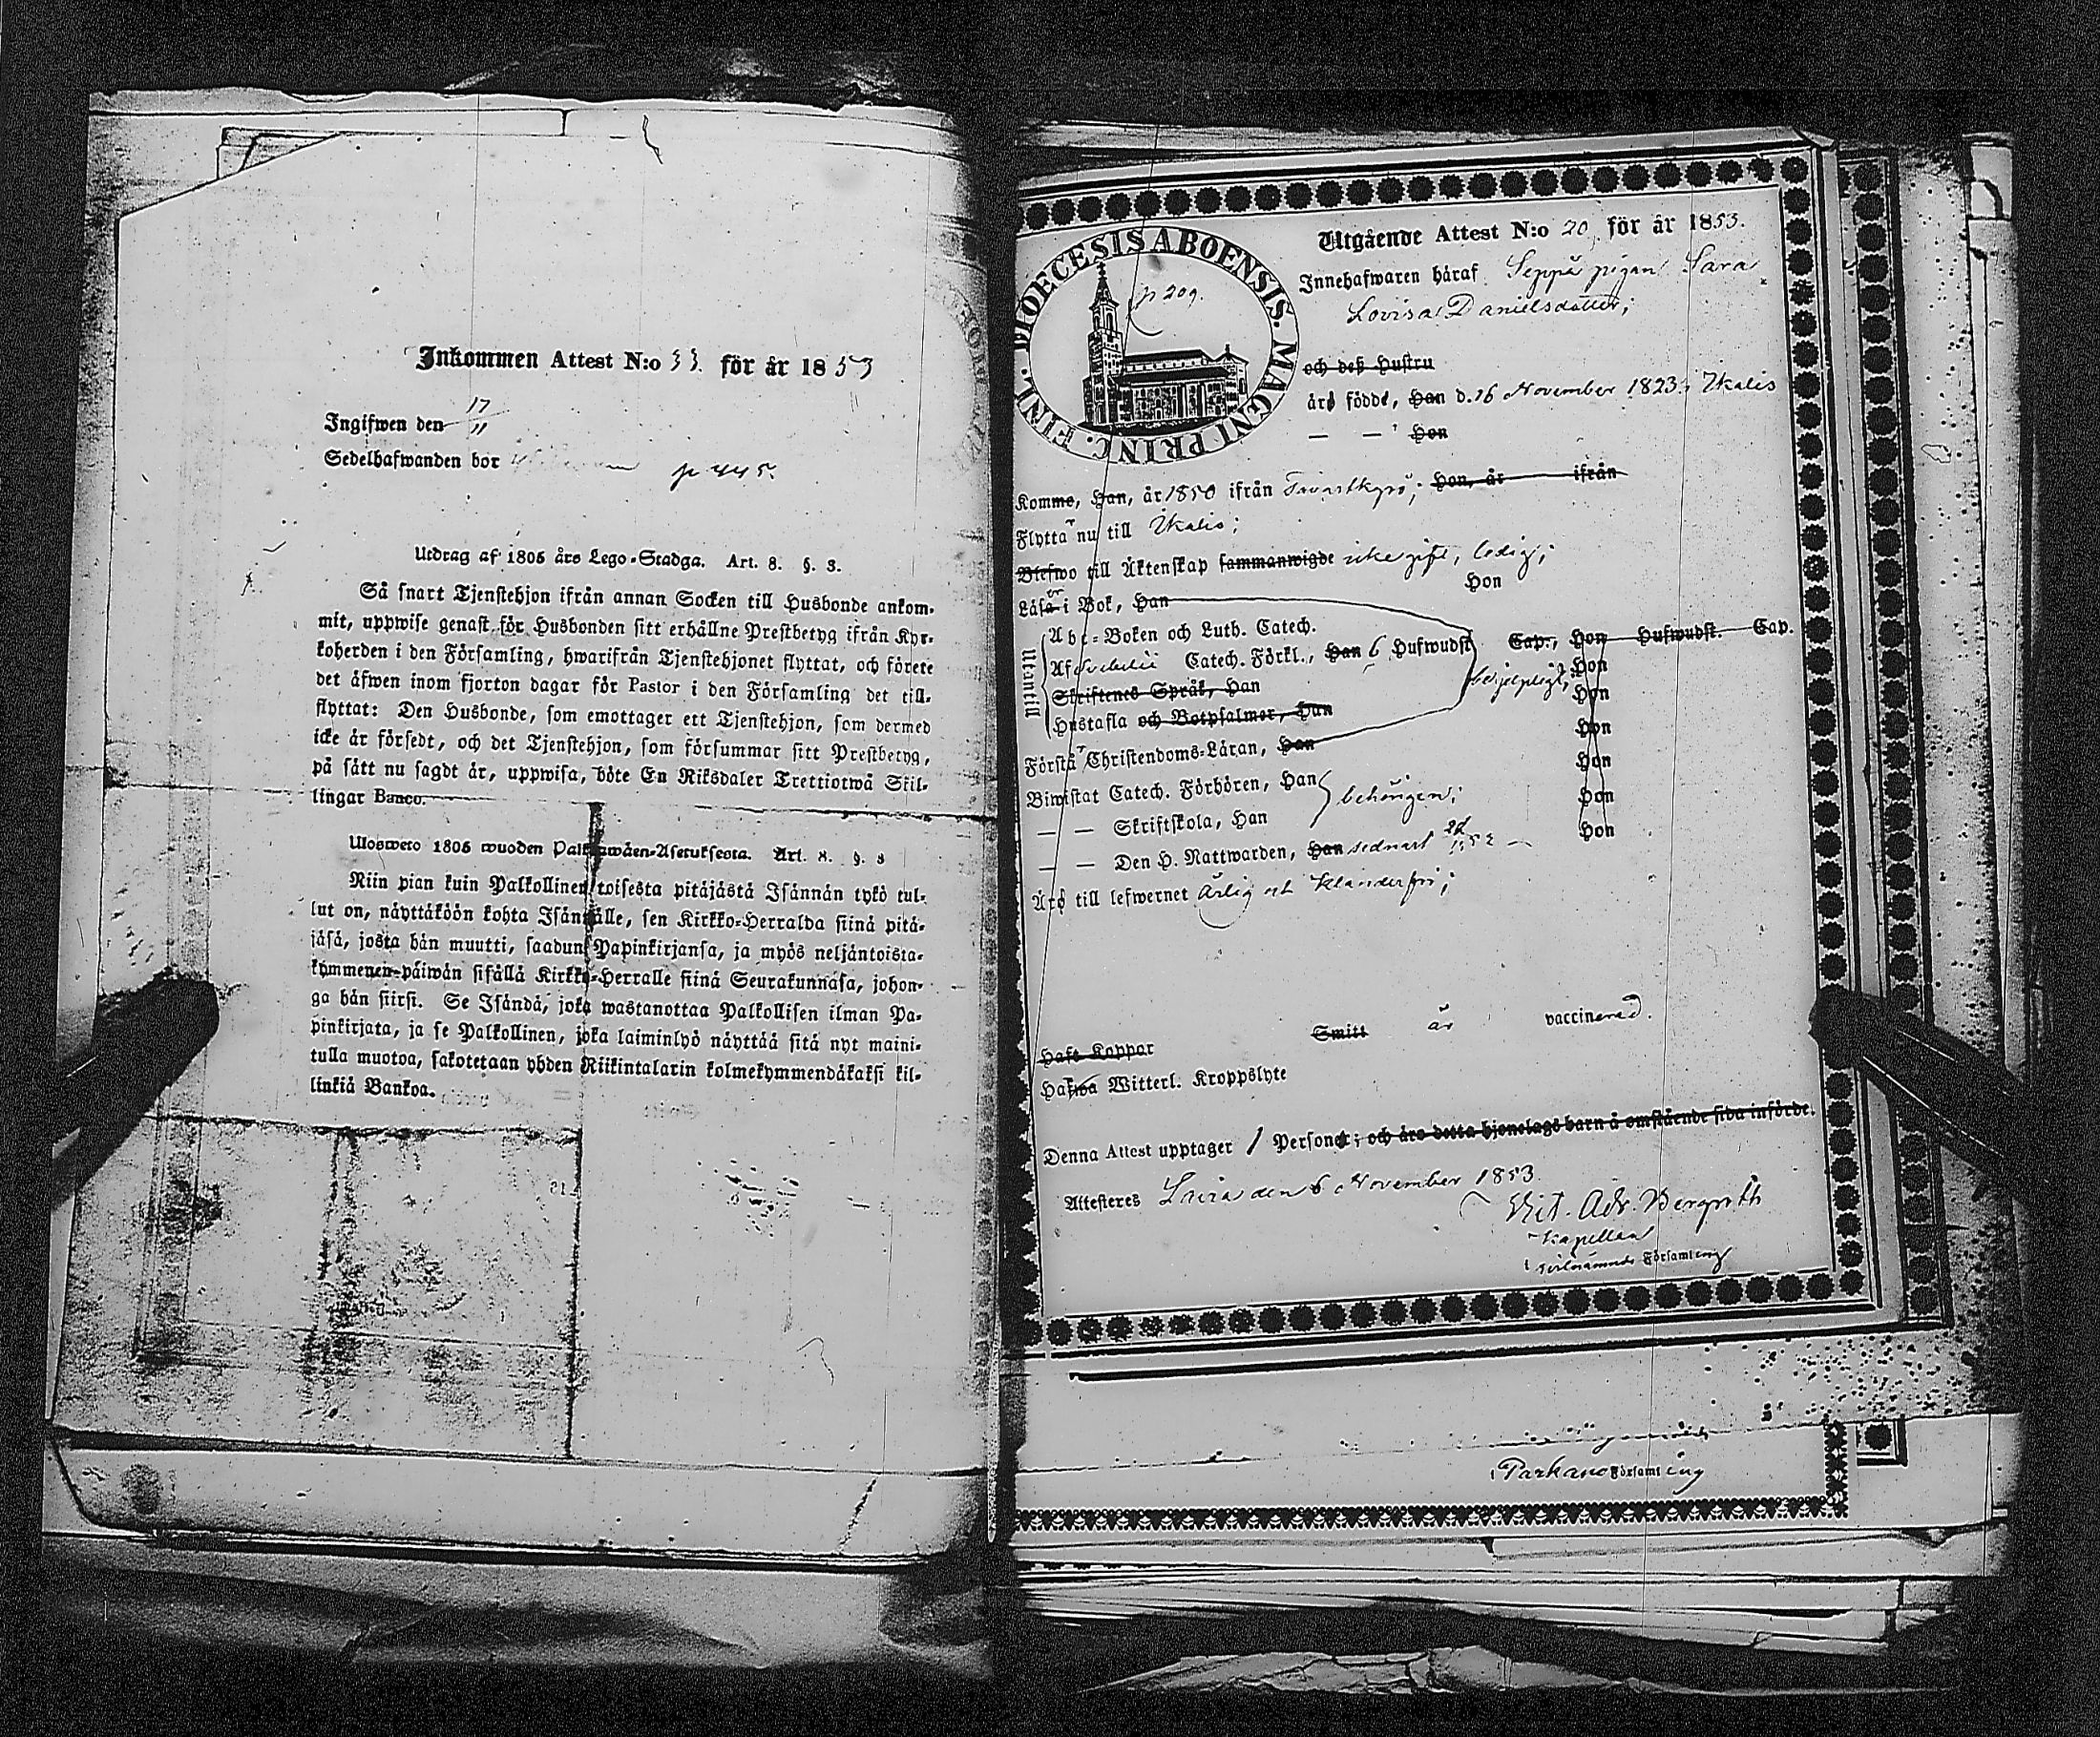 Inkommen Attest N:o 33. för år 1853
Ingifwen den 17/11
Sedelhafwanden bor p 445.
Utdrag af 1805 års Lego-Stadga. Art. 8. §. 3.
Så snart Tjenstehjon ifrån annan Socken till Husbonde ankom-
mit, uppwise genast för Husbonden sitt erhållne Prestbetyg ifrån Kyr-
koherden i den Församling, hwarifrån Tjenstehjonet flyttat, och förete
det äfwen inom fjorton dagar för Pastor i den Församling det till-
flyttat: Den Husbonde, som emottager ett Tjenstehjon, som dermed
icke är försedt, och det Tjenstehjon, som försummar sitt Prestbetyg,
på sätt nu sagdt är, uppwisa, böte En Riksdaler Trettiotwå Skil-
lingar Banco.
Ulosweto 1805 wuoden Palkkawäen-Asetuksesta. Art. 8. §. 3
Niin pian kuin Palkollinen toisesta pitäjästä Isännän tykö tul-
lut on, näyttäköön kohta Isännälle, sen Kirkko-Herralda siinä pitä-
jäsä, josta hän muutti, saadun Papinkirjansa, ja myös neljäntoista-
kymmenen-päiwän sisällä Kirkko-Herralle siinä Seurakunnasa, johon-
ga hän siirsi. Se Isändä, joka wastanottaa Palkollisen ilman Pa-
pinkirjata, ja se Palkollinen, joka laiminlyö näyttää sitä nyt maini-
tulla muotoa, sakotetaan yhden Riikintalarin kolmekymmendäkaksi kil-
linkiä Bankoa.
DIOECESIS ABOENSIS. MAGNI PRINC. FINL.
p 209.
Utgående Attest N:o 20, för år 1853.
Innehafwaren häraf Seppä pigan Sara
Lovisa Danielsdotter;
och deß Hustru
äro födde, Han d. 16 November 1823 i Ikalis
— — Hon
Komme, Han, år 1850 ifrån Tavastkyro; Hon, år ifrån
Flyttar nu till Ikalis;
Blefwo till Äktenskap sammanwigde icke gift, ledig;
Läser i Bok, Han Hon
Utantill
Abc-Boken och Luth. Catech.
Af Svebelii Catech. Förkl., Han 6 Hufwudst. Cap., Hon Hufwudst. Cap.
Skriftenes Språk, Han Hon
Hustafla och Botpsalmer, Han Hon
behjelpligt;
Förstår Christendoms-Läran, Han Hon
Biwistat Catech. Förhören, Han Hon
behörigen;
— — Skriftskola, Han Hon
— — Den H. Nattwarden, Han sednast 1853 Hon
Äro till lefwernet ärlig och klanderfri;
Haft Koppor Smitt är vaccinerad.
Hafwa Witterl. Kroppslyte
Denna Attest upptager 1 Person; och äro detta hjonelags barn å omstående sida införde.
Attesteres Lavia den 6 November 1853.
Vict. Adr. Bergroth
Kapellan
i förbenämnde Församling
i Parkano Församling